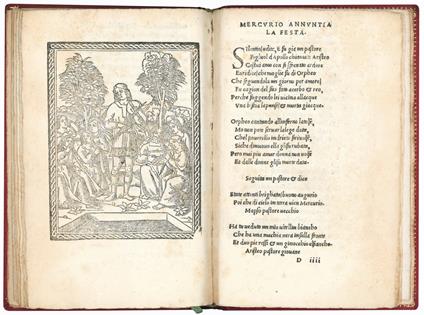 MERCVRIO ANNVNTIA
LA FESTA.
Silentio, udite, E fu gia un pastore
Figliuol d Apollo chiamato Aristeo
Costui amo con si sfrenato ardore
Euridice che moglie fu di Orpheo
Che seguendola un giorno per amore
Fu cagion del suo fato acerbo & reo,
Perche fuggendo lei vicina allacque
Vna biscia la punse & morta giacque.
Orpheo cantando allinferno la tolse,
Ma non pote servar la legge data,
Chel poverello indrieto si rivolse
Siche di nuovo ella gli fu rubata,
Pero mai piu amar donna non volse
Et dalle donne gli fu morte data.
Seguita un pastore & dice
State attenti brighata, buono augurio
Poi che di cielo in terra vien Mercurio.
Mopso pastore vecchio
Ha tu veduto un mio vitellin biancho
Che ha una macchia nera in sulla fronte
Et duo pie rossi & un ginocchio elfiancho.
Aristeo pastore giovane
D iiii